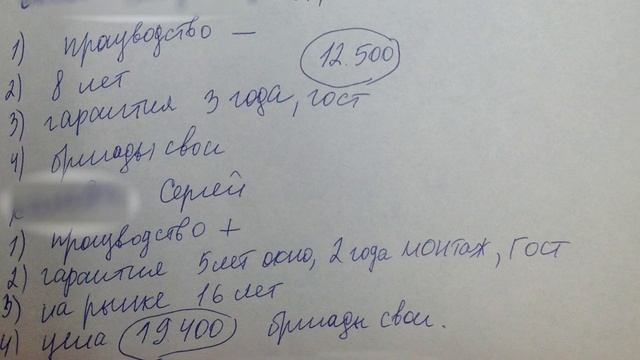 1) производство —
12.500
2) 8 лет
3) гарантия 3 года, гост
4) бригады свои
Сергей
1) производство +
2) гарантия 5 лет окно, 2 года монтаж, гост
3) на рынке 16 лет
4) цена 19 400 бригады свои.